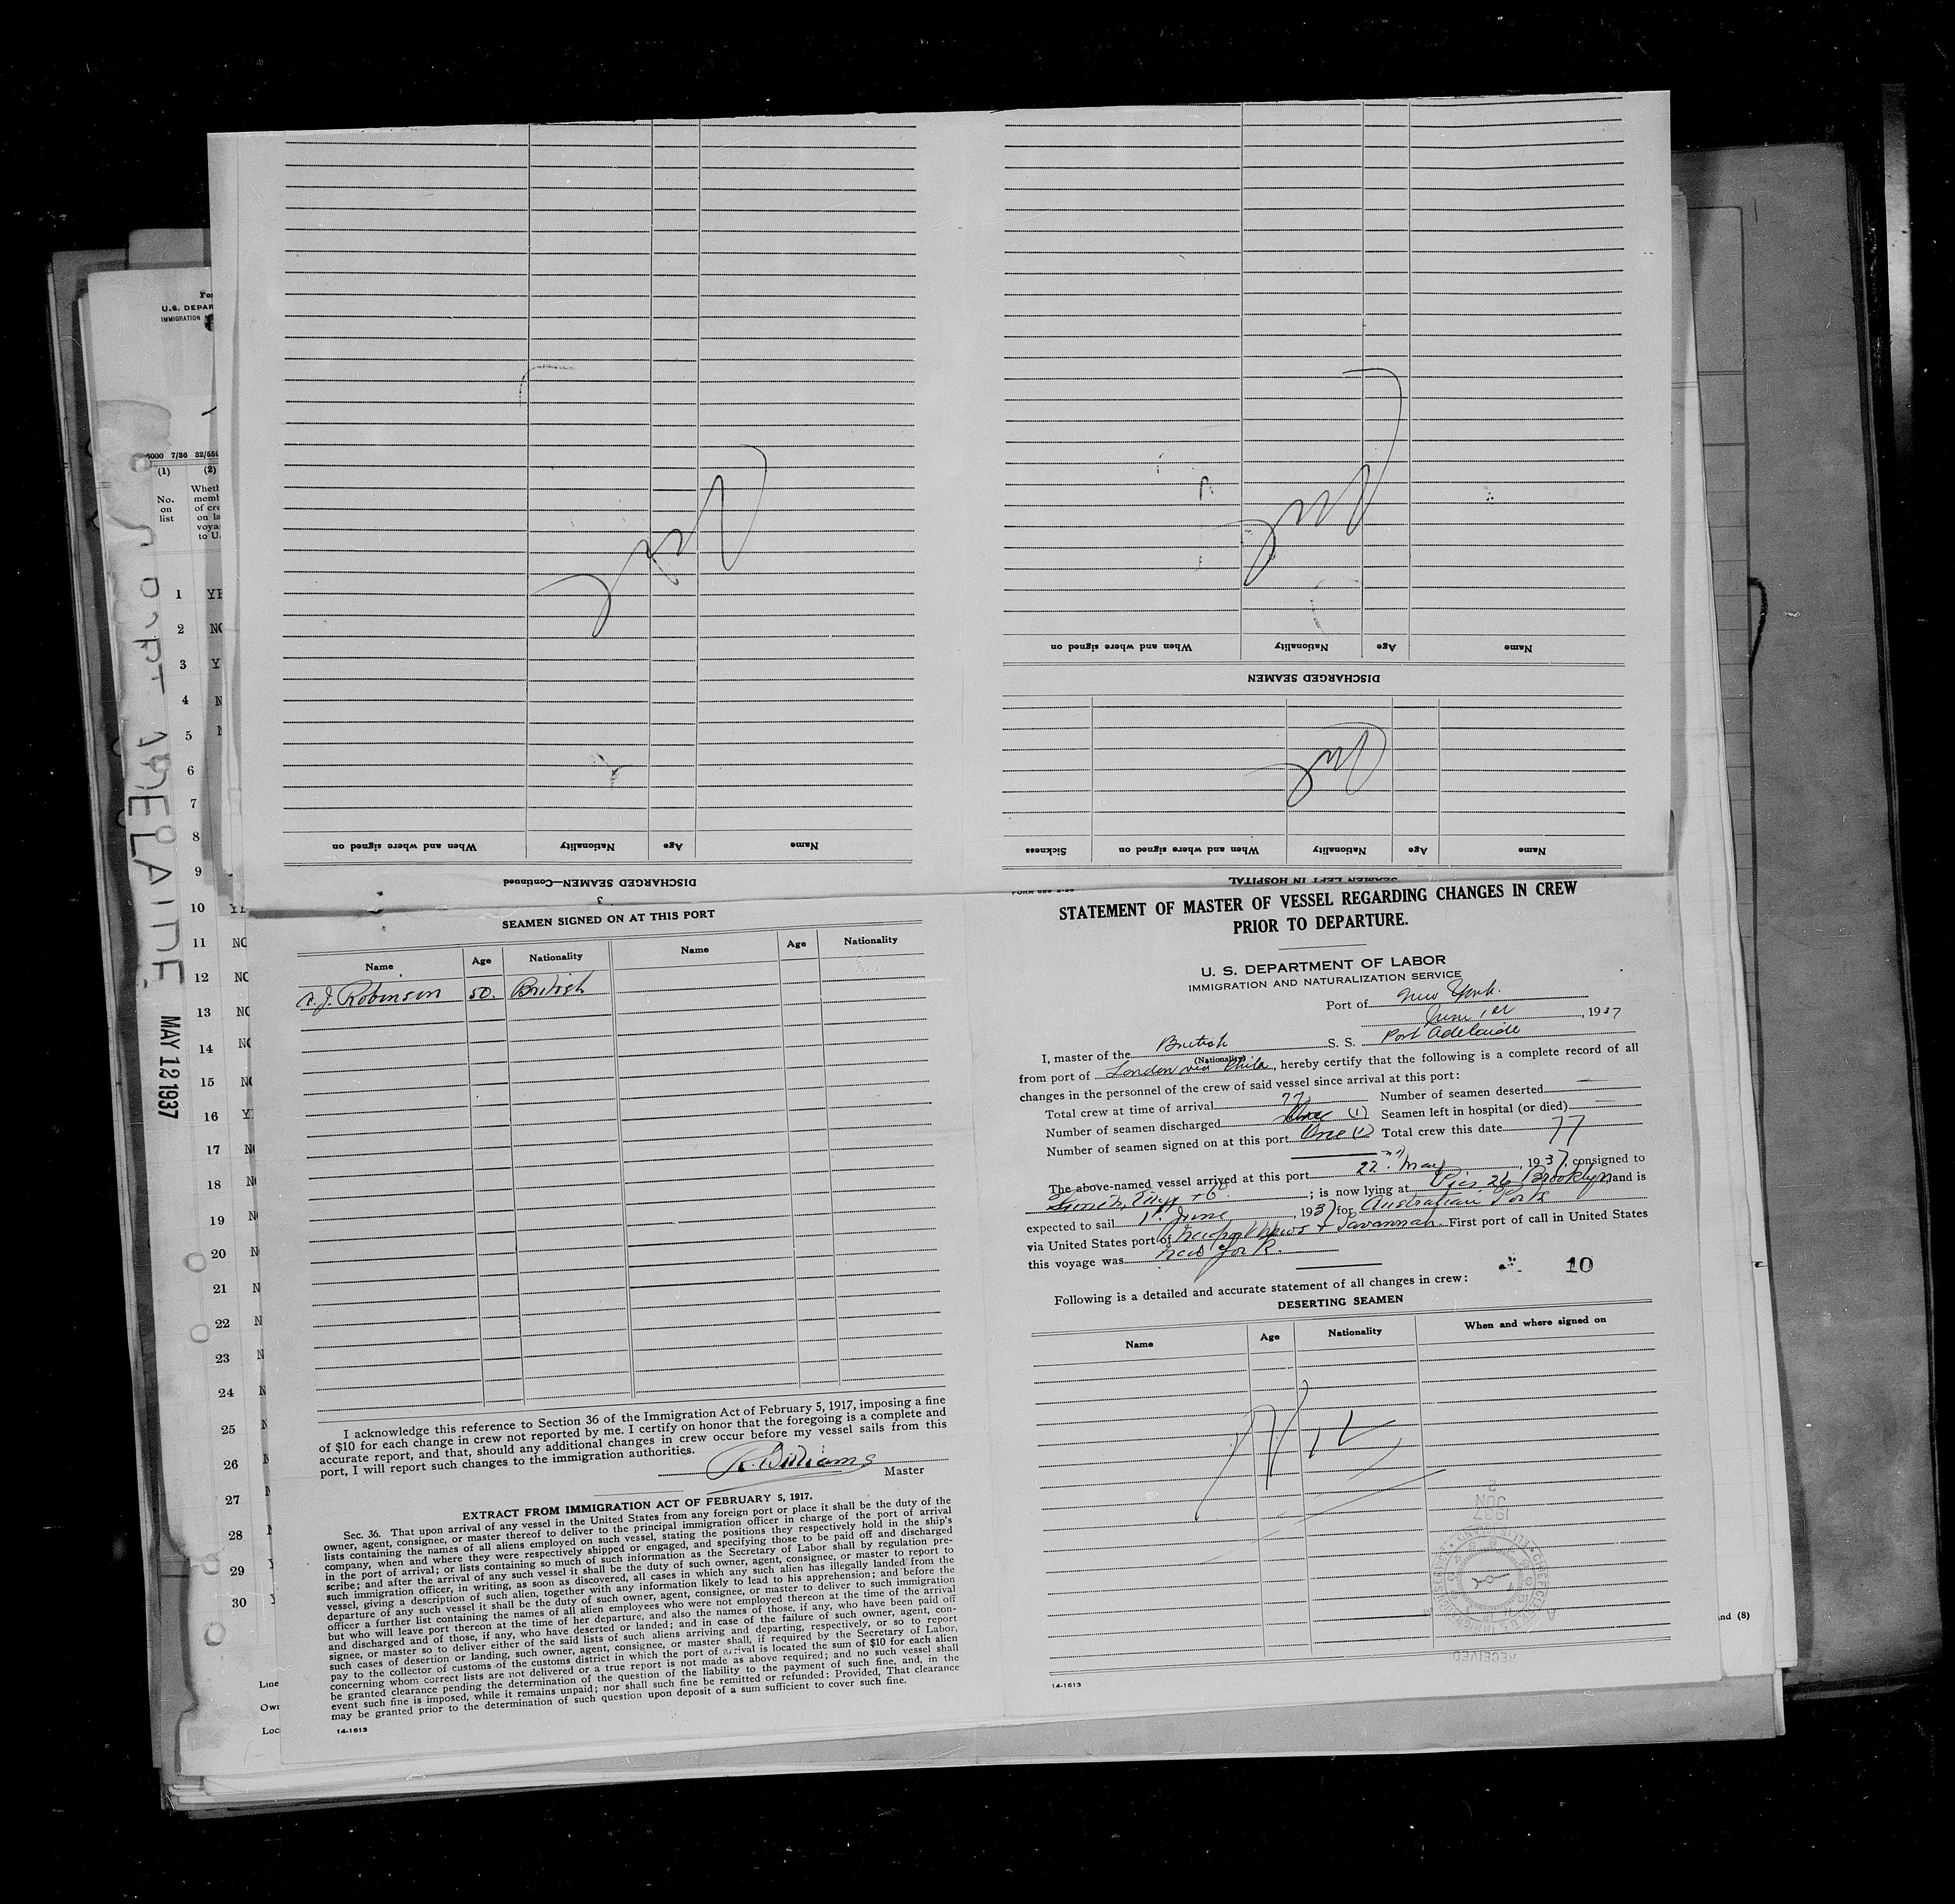 DISCHARGED SEAMEN—Continued
Name Age Nationality When and where signed on
SEAMEN LEFT IN HOSPITAL
Name Age Nationality When and where signed on Sickness
DISCHARGED SEAMEN
Name Age Nationality When and where signed on
U.S. DEPAR
IMMIGRATION
5000 7/36 32/559
(1) (2)
No. on list
Wheth
memb
of cre
on la
voya
to U.
PORT ADELAIDE MAY 12 1937
1
2
3
4
5
6
7
8
9
10
11
12
13
14
15
16
17
18
19
20
21
22
23
24
25
26
27
28
29
30
Line
Own
Loc
3
SEAMEN SIGNED ON AT THIS PORT
Name Age Nationality Name Age Nationality
A. J. Robinson 50. British
I acknowledge this reference to Section 36 of the Immigration Act of February 5, 1917, imposing a fine
of $10 for each change in crew not reported by me. I certify on honor that the foregoing is a complete and
accurate report, and that, should any additional changes in crew occur before my vessel sails from this
port, I will report such changes to the immigration authorities.
R. Williams
Master
EXTRACT FROM IMMIGRATION ACT OF FEBRUARY 5, 1917.
Sec. 36. That upon arrival of any vessel in the United States from any foreign port or place it shall be the duty of the
owner, agent, consignee, or master thereof to deliver to the principal immigration officer in charge of the port of arrival
lists containing the names of all aliens employed on such vessel, stating the positions they respectively hold in the ship's
company, when and where they were respectively shipped or engaged, and specifying those to be paid off and discharged
in the port of arrival; or lists containing so much of such information as the Secretary of Labor shall by regulation pre-
scribe; and after the arrival of any such vessel it shall be the duty of such owner, agent, consignee, or master to report to
such immigration officer, in writing, as soon as discovered, all cases in which any such alien has illegally landed from the
vessel, giving a description of such alien, together with any information likely to lead to his apprehension; and before the
departure of any such vessel it shall be the duty of such owner, agent, consignee, or master to deliver to such immigration
officer a further list containing the names of all alien employees who were not employed thereon at the time of the arrival
but who will leave port thereon at the time of her departure, and also the names of those, if any, who have been paid off
and discharged and of those, if any, who have deserted or landed; and in case of the failure of such owner, agent, con-
signee, or master so to deliver either of the said lists of such aliens arriving and departing, respectively, or so to report
such cases of desertion or landing, such owner, agent, consignee, or master shall, if required by the Secretary of Labor,
pay to the collector of customs of the customs district in which the port of arrival is located the sum of $10 for each alien
concerning whom correct lists are not delivered or a true report is not made as above required; and no such vessel shall
be granted clearance pending the determination of the question of the liability to the payment of such fine, and, in the
event such fine is imposed, while it remains unpaid; nor shall such fine be remitted or refunded: Provided, That clearance
may be granted prior to the determination of such question upon deposit of a sum sufficient to cover such fine.
14-1613
STATEMENT OF MASTER OF VESSEL REGARDING CHANGES IN CREW
PRIOR TO DEPARTURE.
U. S. DEPARTMENT OF LABOR
IMMIGRATION AND NATURALIZATION SERVICE
Port of New York.
June 1st, 1937
I, master of the British S. S. Port Adelaide
(Nationality)
from port of London via Phila, hereby certify that the following is a complete record of all
changes in the personnel of the crew of said vessel since arrival at this port:
Total crew at time of arrival 77 Number of seamen deserted —
Number of seamen discharged One (1) Seamen left in hospital (or died) —
Number of seamen signed on at this port One (1) Total crew this date 77
The above-named vessel arrived at this port 22nd May, 1937, consigned to
; is now lying at Pier 26 Brooklyn and is
expected to sail 1st June, 1937 for Australian Ports
via United States port of Newport News & Savannah. First port of call in United States
this voyage was New York.
10
Following is a detailed and accurate statement of all changes in crew:
DESERTING SEAMEN
Name Age Nationality When and where signed on
Nil
RECEIVED
1937
JUN
2
14-1613
nd (8)